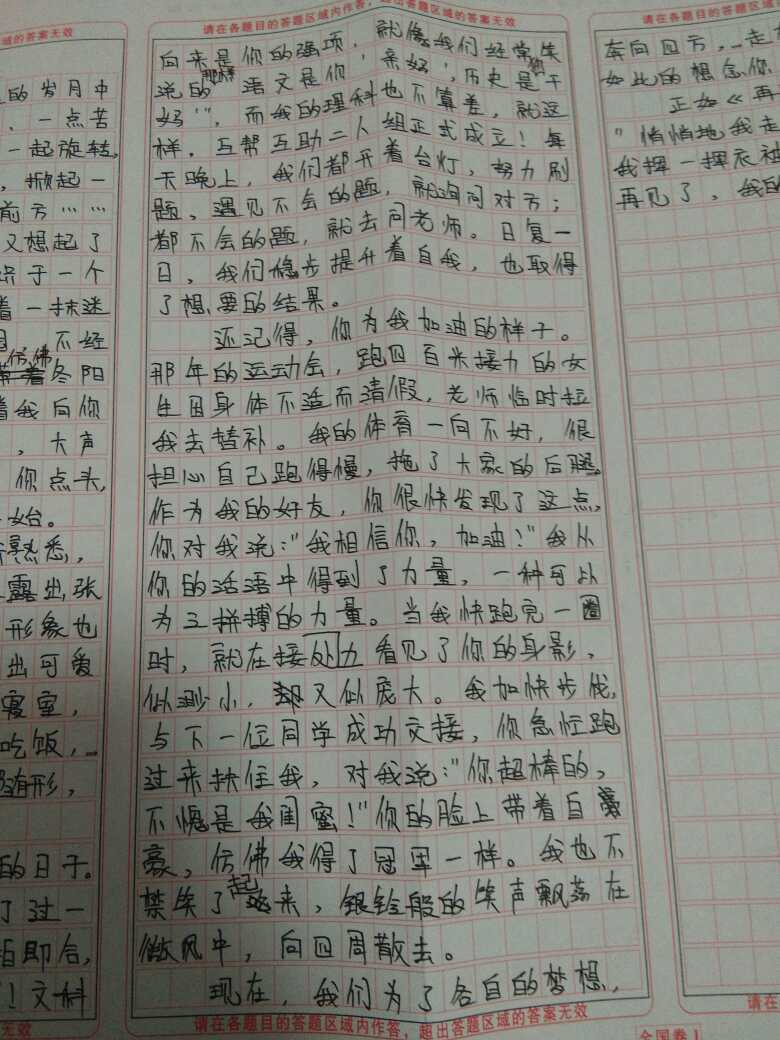 域的答案无效
的岁月中
、一点苦
一起旋转,
,掀起一
前方……
又想起了
于一个
着一抹迷
不经
仿佛
冬阳
着我向你
,大声
你点头,
始。
熟悉,
露出张
形象也
出可爱
寝室,
吃饭,…
随形,
的日子。
了过一
即合,
!文科
无效
请在各题目的答题区域内作答,超出答题区域的答案无效
向来是你的强项,就像我们经常笑
说的那样语文是你'亲妈',历史是你干
妈'",而我的理科也不算差,就这
样,互帮互助二人组正式成立!每
天晚上,我们都开着台灯,努力刷
题、遇见不会的题,就询问对方;
都不会的题,就去问老师。日复一
日,我们稳步提升着自我,也取得
了想要的结果。
还记得,你为我加油的样子。
那年的运动会,跑四百米接力的女
生因身体不适而请假,老师临时拉
我去替补。我的体育一向不好,很
担心自己跑得慢,拖了大家的后腿。
作为我的好友,你很快发现了这点,
你对我说:"我相信你,加油!"我从
你的话语中得到了力量,一种可以
为之拼搏的力量。当我快跑完一圈
时,就在接力处看见了你的身影,
似渺小,却又似庞大。我加快步伐,
与下一位同学成功交接,你急忙跑
过来扶住我,对我说:"你超棒的,
不愧是我闺蜜!"你的脸上带着自
豪,仿佛我得了冠军一样。我也不
禁笑了起来,银铃般的笑声飘荡在
微风中,向四周散去。
现在,我们为了各自的梦想,
请在各题目的答题区域内作答,超出答题区域的答案无效
请在各题目的答题区域内作答
奔向四方,…走
如此的想念你
正如《再
"悄悄地我走
我挥一挥衣袖
再见了,我的
请在
全国卷1